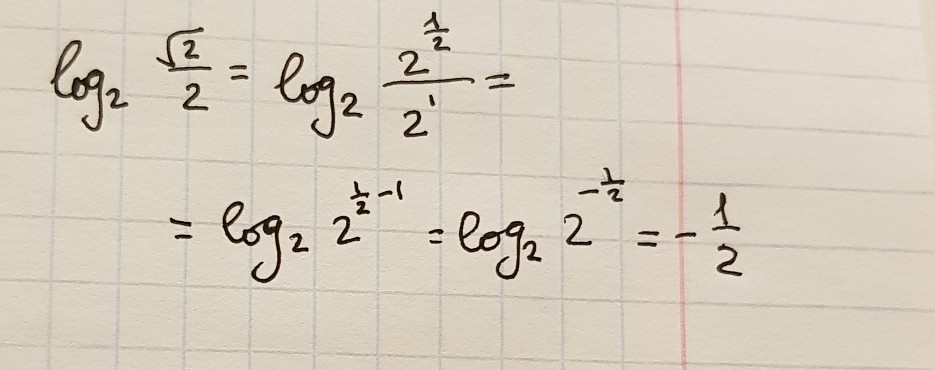 log₂ √2/2 = log₂ 2^(1/2)/2¹ =
= log₂ 2^(1/2 - 1) = log₂ 2^(-1/2) = - 1/2